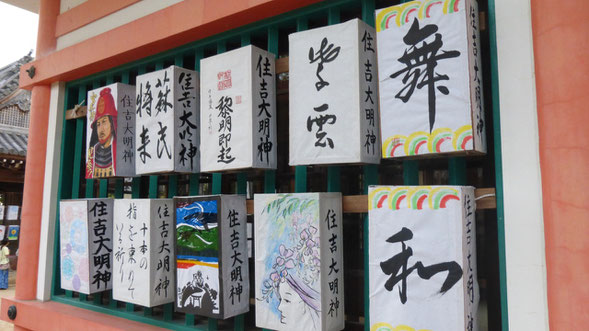 住吉大明神
蘇民
将来
住吉大明神
黎明即起
住吉大明神
雲
住吉大明神
舞
住吉大明神
十本の
指を束りて
いる祈り
住吉大明神
住吉大明神
住吉大明神
和
住吉大明神